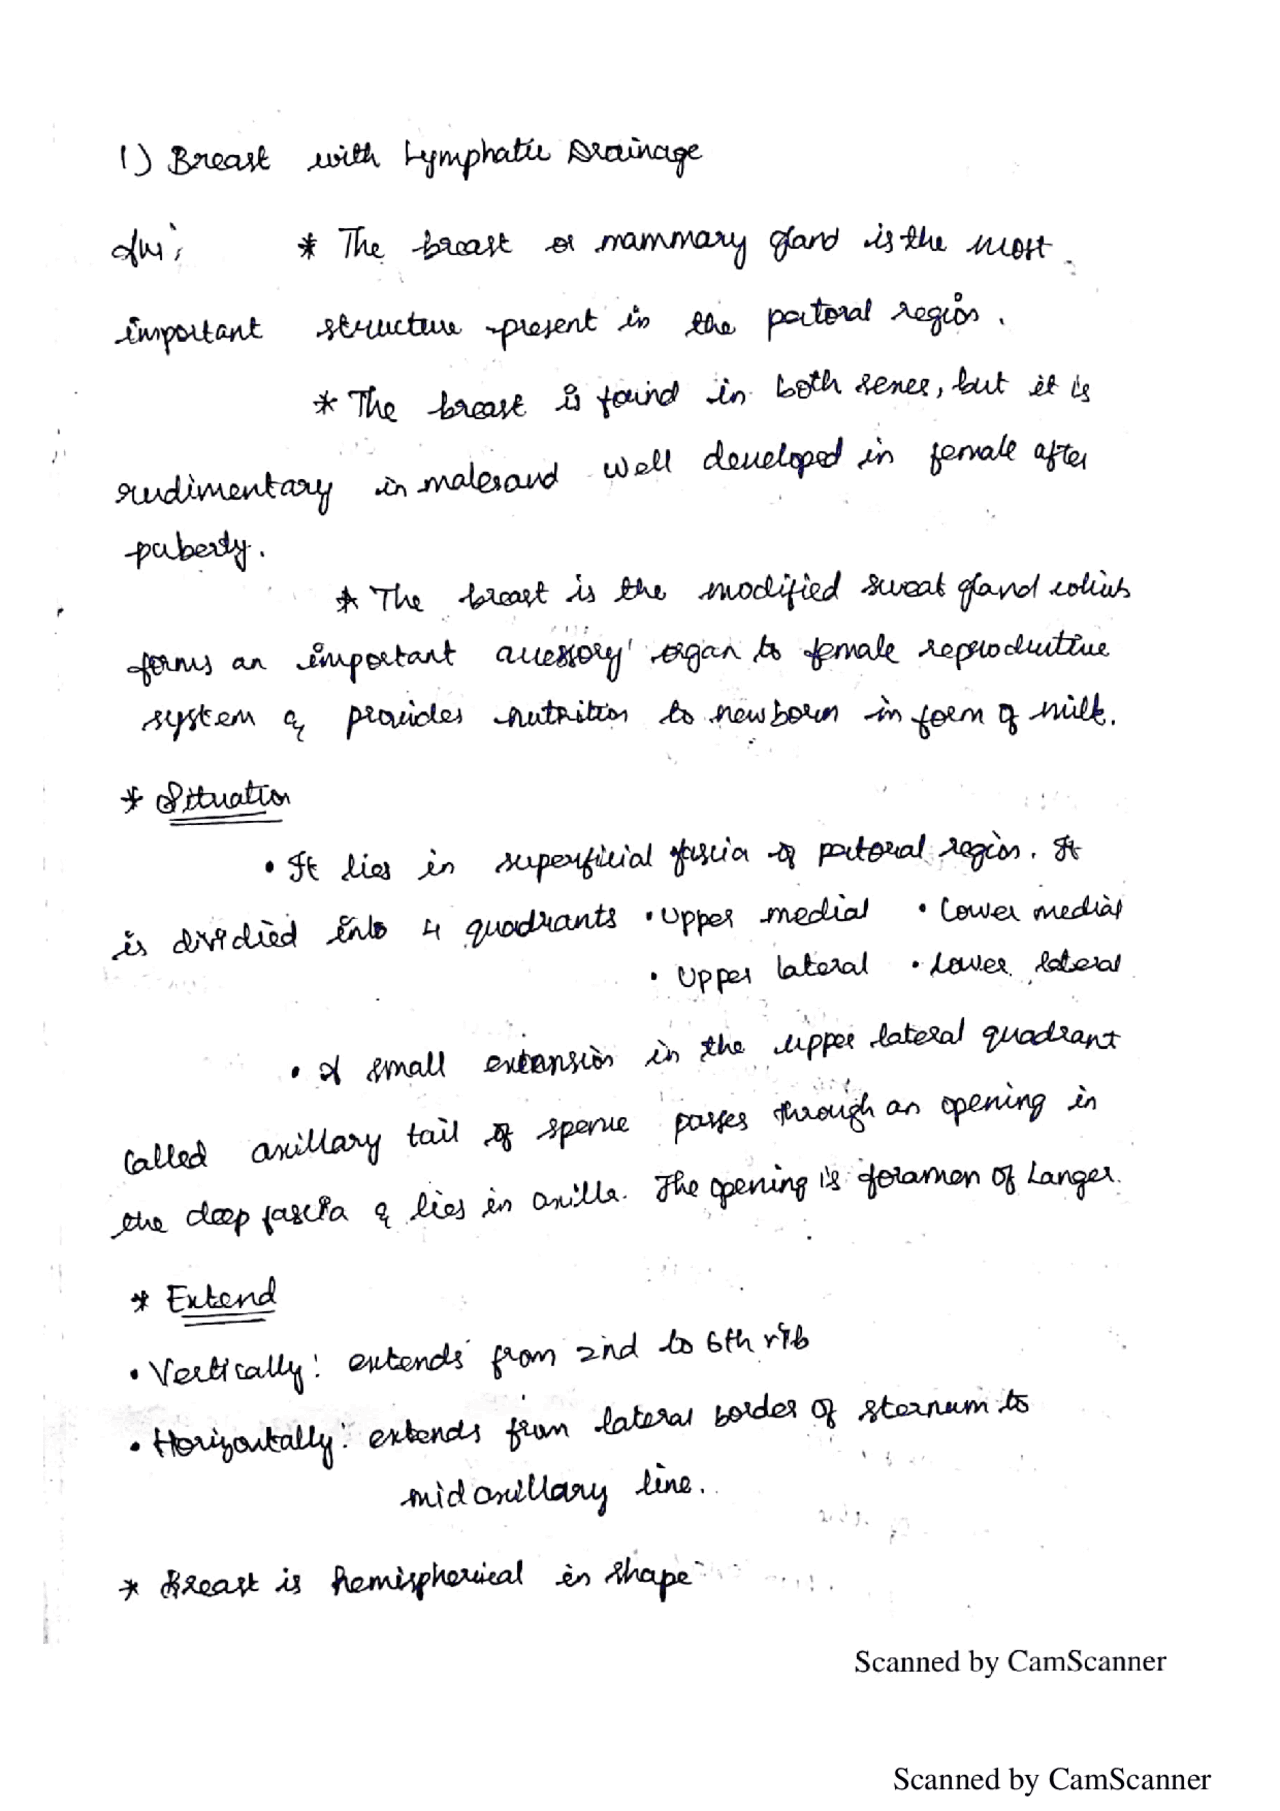 1) Breast with Lymphatic Drainage
Ans; * The breast or mammary gland is the most
important structure present in the pectoral region.
* The breast is found in both sexes, but it is
rudimentary in males and well developed in female after
puberty.
* The breast is the modified sweat gland which
forms an important accessory organ to female reproductive
system & provides nutrition to newborn in form of milk.
* Situation
• It lies in superficial fascia of pectoral region. It
is dividied into 4 quadrants • Upper medial • Lower medial
• Upper lateral • Lower lateral
• A small extension in the upper lateral quadrant
called axillary tail of spence passes through an opening in
the deep fascia & lies in axilla. The opening is foramen of Langer.
* Extend
• Vertically: extends from 2nd to 6th rib
• Horizontally: extends from lateral border of sternum to
midaxillary line.
* Breast is hemispherical in shape
Scanned by CamScanner
Scanned by CamScanner